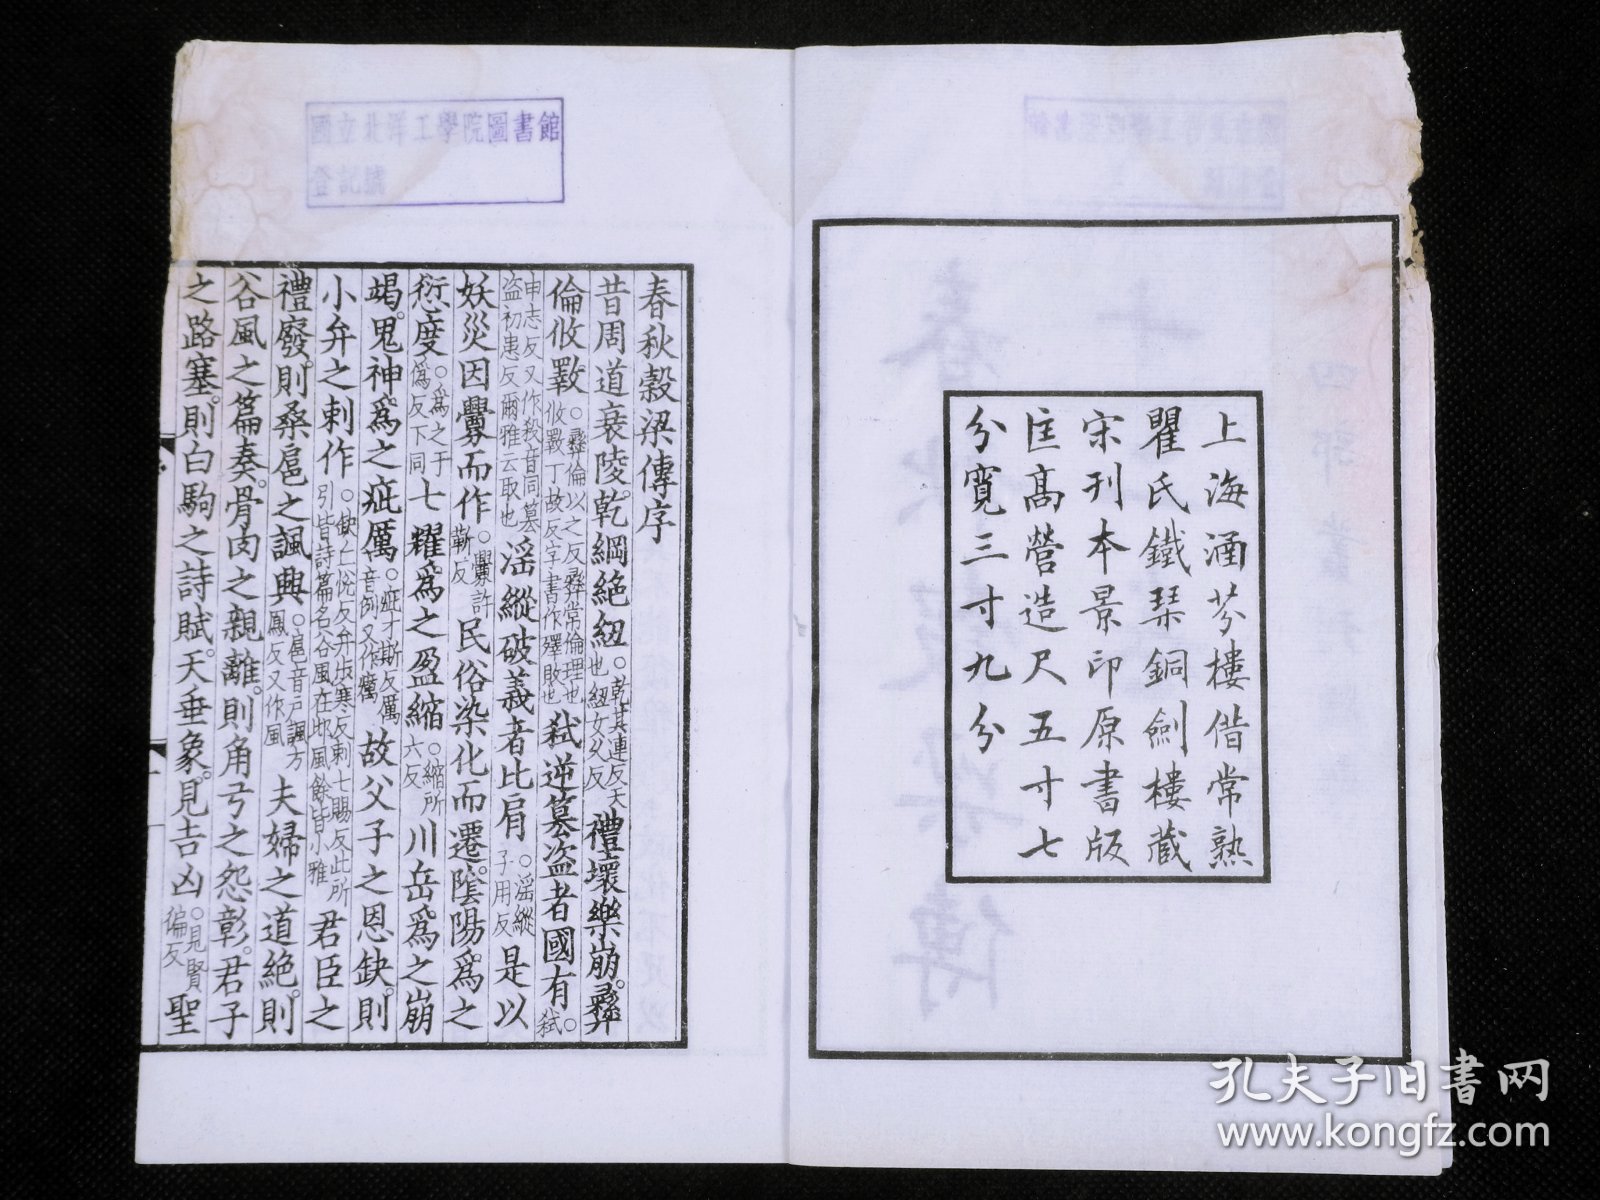 上海涵芬樓借常熟
瞿氏鐵琴銅劍樓藏
宋刊本景印原書版
匡高營造尺五寸七
分寬三寸九分
國立北洋工學院圖書館
登記號
春秋穀梁傳序
昔周道衰陵。乾綱絕紐。○乾其連反天也紐女久反禮壞樂崩。彝
倫攸斁。○彝倫以之反彝常倫理也攸斁丁故反字書作殬敗也弑逆篡盜者國有。○弑
申志反又作殺音同篡初患反爾雅云取也淫縱破義者比肩。○淫縱子用反是以
妖災因釁而作。○釁許靳反民俗染化而遷。陰陽爲之
愆度。○爲之于僞反下同七耀爲之盈縮。○縮所六反川岳爲之崩
竭。鬼神爲之疵厲。○疵才斯反厲音例又作癘故父子之恩缺。則
小弁之刺作。○弁步寒反刺七賜反此所引皆詩篇名谷風在邶風餘皆小雅君臣之
禮廢。則桑扈之諷興。○扈音戶諷方鳳反又作風夫婦之道絕。則
谷風之篇奏。骨肉之親離。則角弓之怨彰。君子
之路塞。則白駒之詩賦。天垂象。見吉凶。○見賢徧反聖
孔夫子旧書网
www.kongfz.com